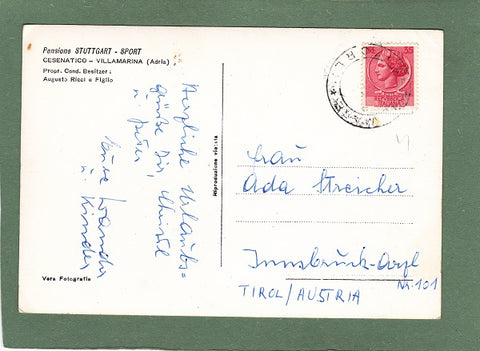 Pensione STUTTGART - SPORT
CESENATICO - VILLAMARINA (Adria)
Propr. Cond. Besitzer:
Augusto Ricci e Figlio
Herzliche Urlaubs=
grüße Dir,
u Peter
Eure Wanda
u Kinder
Vera Fotografia
Riproduzione vietata
Frau
Ada Streicher
Innsbruck-Arzl
Nr. 101
TIROL/AUSTRIA